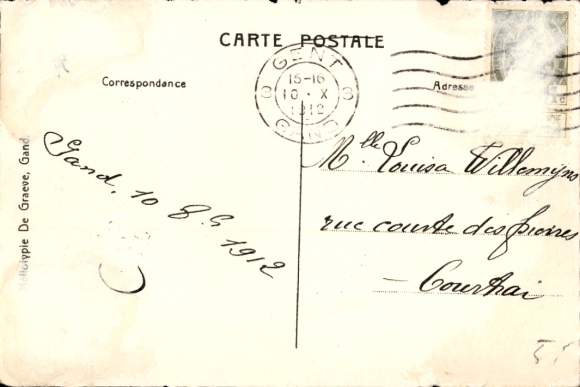 CARTE POSTALE
Correspondance
Adresse
GENT
15-16
10 · X
1912
GAND
Gand, 10 8bre 1912
Mlle Louisa Willemyns
rue courte des pierres
— Courtrai
Héliotypie De Graeve, Gand.